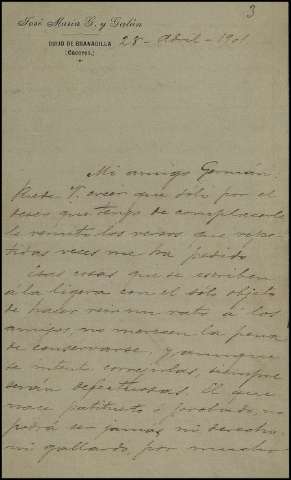 3
José María G. y Galán
GUIJO DE GRANADILLA
(Cáceres.)
28 - Abril - 1901
Mi amigo Germán:
Puede V. creer que sólo por el
deseo que tengo de complacerle
le remito los versos que repe-
tidas veces me ha pedido.
Esas cosas que se escriben
á la ligera con el sólo objeto
de hacer reir un rato á los
amigos, no merecen la pena
de conservarse, y aunque
se intente corregirlas, siempre
serán defectuosas. El que
nace patituerto ó jorobado, no
podrá ser jamás ni derecho,
ni gallardo, por mucho